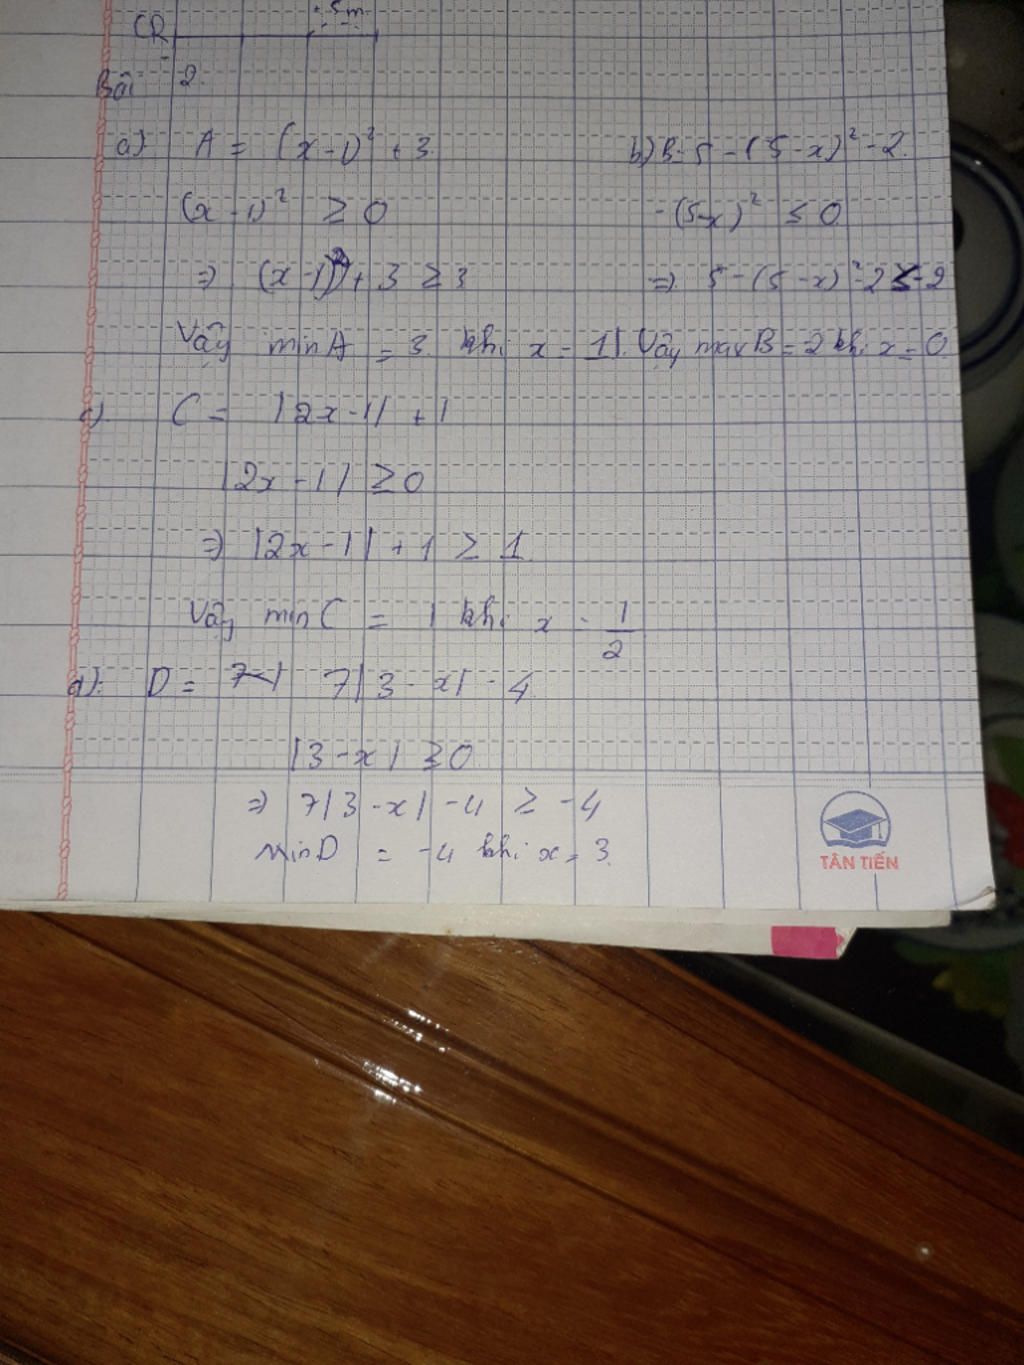 CR
5m
Bài 2.
a) A = (x-1)² + 3.
b) B = 5 - (5-x)² - 2.
(x-1)² ≥ 0
-(5-x)² ≤ 0
⇒ (x-1)² + 3 ≥ 3
⇒ 5 - (5-x)² - 2 ≤ -2
Vậy min A = 3 khi x = 1.
Vậy max B = -2 khi x = 0
c) C = |2x-1| + 1
|2x-1| ≥ 0
⇒ |2x-1| + 1 ≥ 1
Vậy min C = 1 khi x = 1/2
d) D = 7|3-x| - 4
|3-x| ≥ 0
⇒ 7|3-x| - 4 ≥ -4
min D = -4 khi x = 3.
TÂN TIẾN